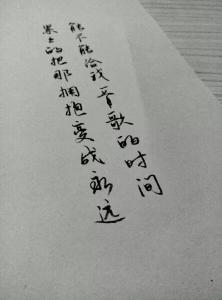 能不能给我一首歌的时间
紧紧的把那拥抱变成永远